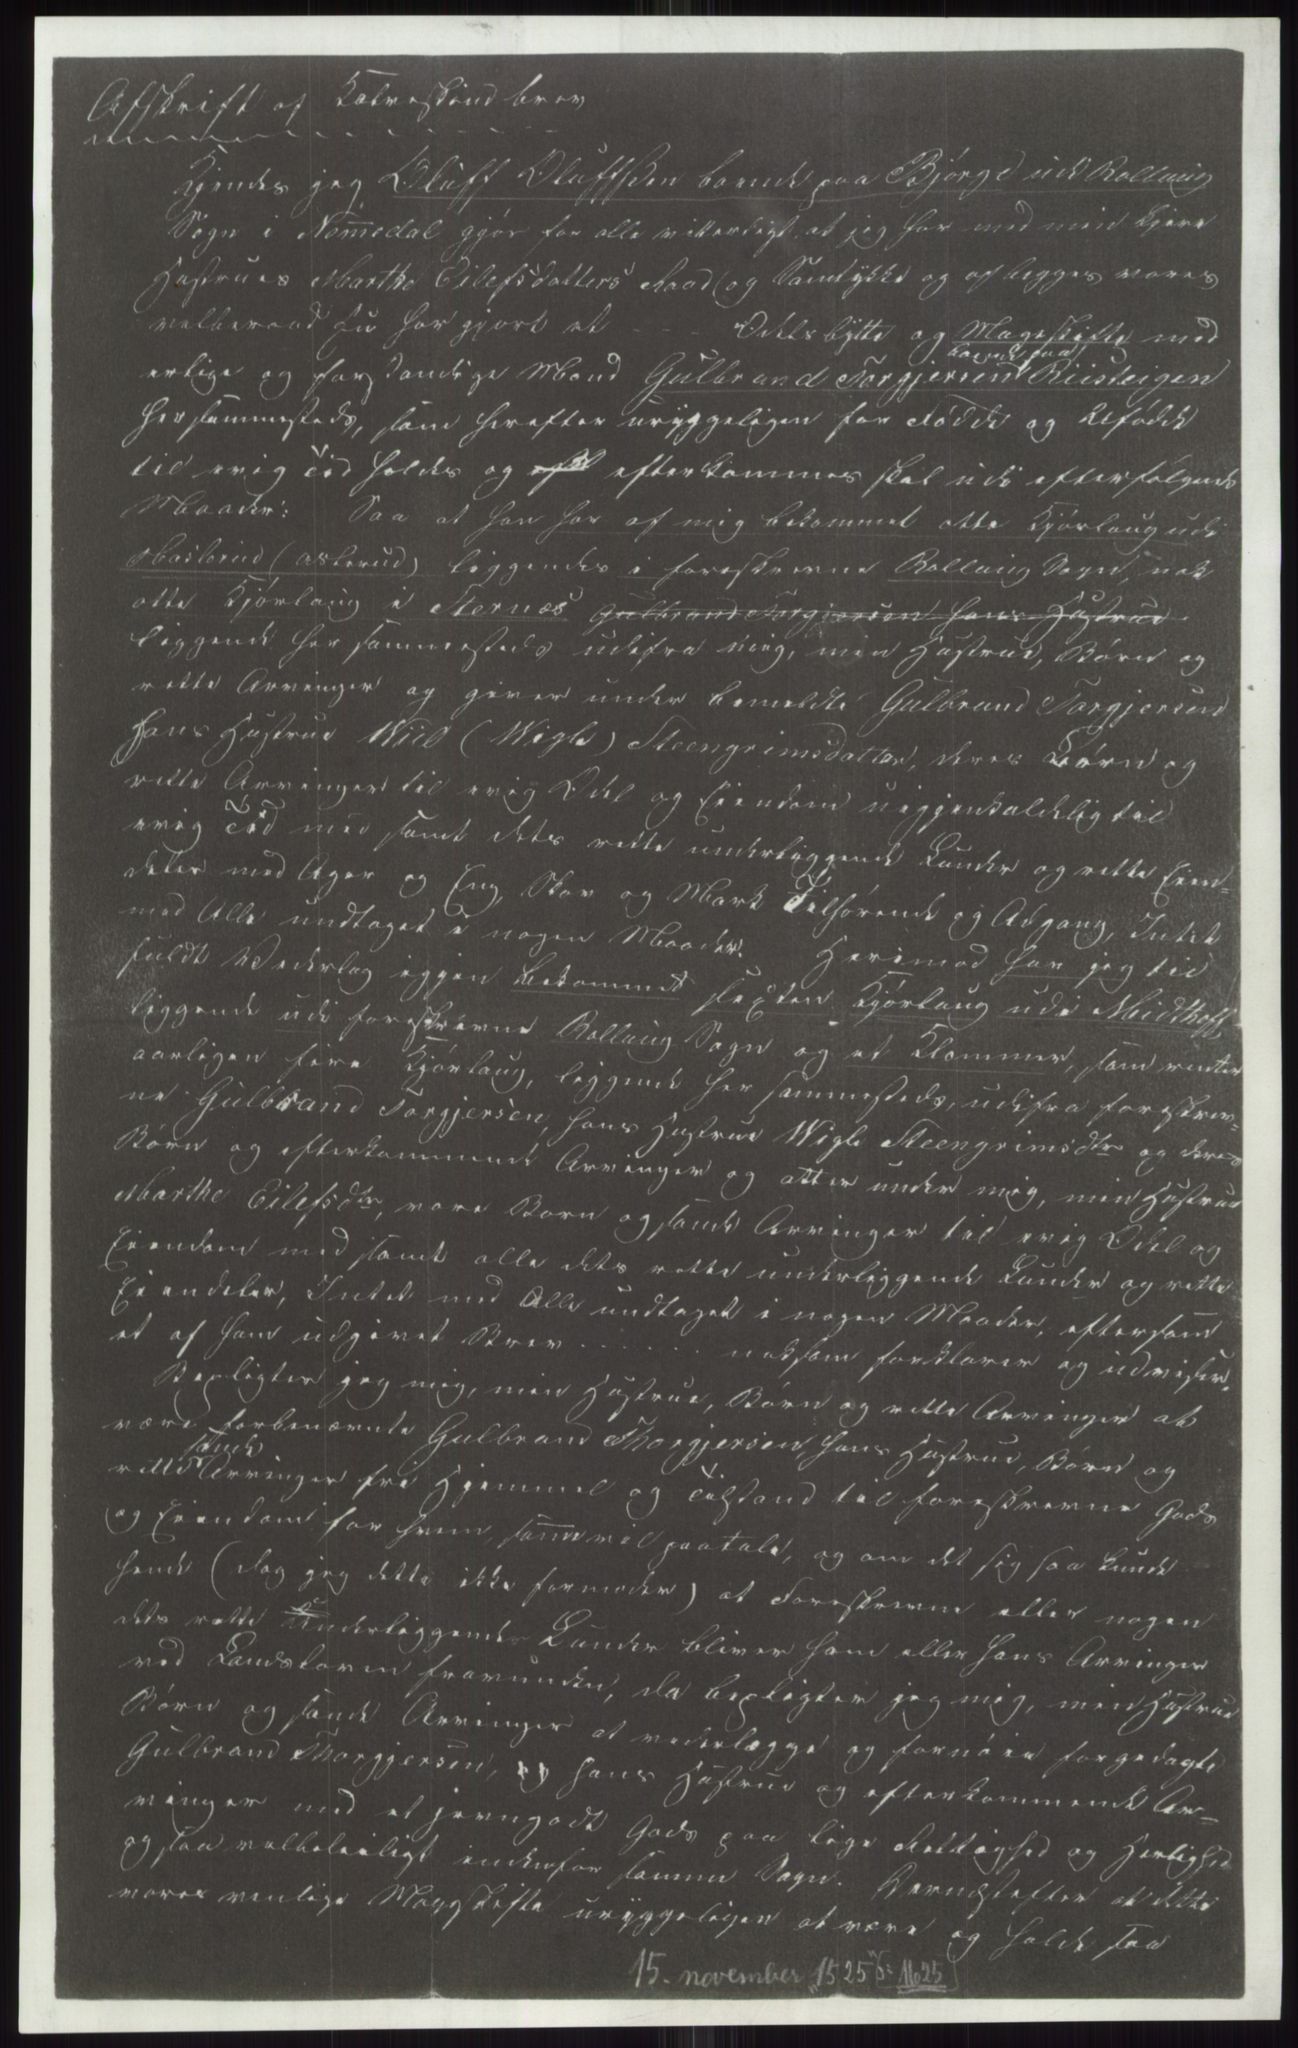 Afskrift af Kalveskind brev
Kjendes jeg Oluff Oluffsen boende paa Bjørge udi Rollaug
Sogn i Nommedal gjør for alle vitterligt at jeg har med min kjere
Hustrues Marthe Eilefsdatters Raad og Samtykke og af begges vores
velberaad Hu har gjort et - - - Odelsbytte og Mageskifte med
erlige og forstandige Mand Gulbrand Torgjersen boende paa Riisteigen
her sammesteds, som herefter uryggeligen for Fødde og Ufødde
til evig Tid holdes og efterkommes skal udi efterfølgende
Maader: Saa at han har af mig bekommet otte Kjørlaug udi
(Asterud) liggendes i foreskrevne Rollaug Sogn, nok
otte Kjørlaug i Ternæs Gulbrand Torgjersen hans Hustrue
liggende her sammesteds udifra mig, min Hustrue, Børn og
rette Arvinger og giver under bemeldte Gulbrand Torgjersen
hans Hustrue Wiel (Wigle) Steengrimsdatter, deres Børn og
rette Arvinger til evig Odel og Eiendom uigjenkaldelig til
evig Tid med samt dets rette underliggende Lunder og rette Eien-
deler med Ager og Eng, Skov og Mark Tilhørende og Adgang, Intet
med Alle undtaget i nogen Maader. Herimod har jeg til
fuldt Vederlag igjen bekommet sexten Kjørlaug udi Midthoff
liggende udi foreskrevne Rollaug Sogn og et Klammer, som renter
aarligen fire Kjørlaug, liggende her sammesteds, udifra foreskrev-
ne Gulbrand Torgjersen, hans Hustrue Wigle Steengrimsdtr og deres
Børn og efterkommende Arvinger og atter under mig, min Hustrue
Marthe Eilefsdtr, vore Børn og sande Arvinger til evig Odel og
Eiendom med samt alle dets rette underliggende Lunder og rette
Eiendeler, Intet med Alle undtaget i nogen Maader, eftersom
et af ham udgivet Brev . . . . . . noksom forklarer og udviser.
Bepligter jeg mig, min Hustrue, Børn og rette Arvinger at
være forbenævnte Gulbrand Thorgjersen, hans Hustrue, Børn og
rette sande Arvinger fri Hjemmel og Tilstand til foreskrevne Gods
og Eiendom for hvem, som vil paatale, og om det sig saa kunde
hende (dog jeg dette ikke formoder) at Foreskrevne eller nogen
dets rette Underliggendes Lunder bliver ham eller hans Arvinger
ved Landsloven fravunden, da bepligter jeg mig, min Hustrue
Børn og sande Arvinger at vederlægge og fornøie forgedagte
Gulbrand Thorgjersen, og hans Hustrue og efterkommende Ar-
vinger med et jevngodt Gods paa lige Rettighed og Herlighed
og saa velbeleiligt indenfor samme Sogn. at dette
vores venlige Magskifte uryggeligen at være og holde saa
15. november "1525" [ɔ: 1625]